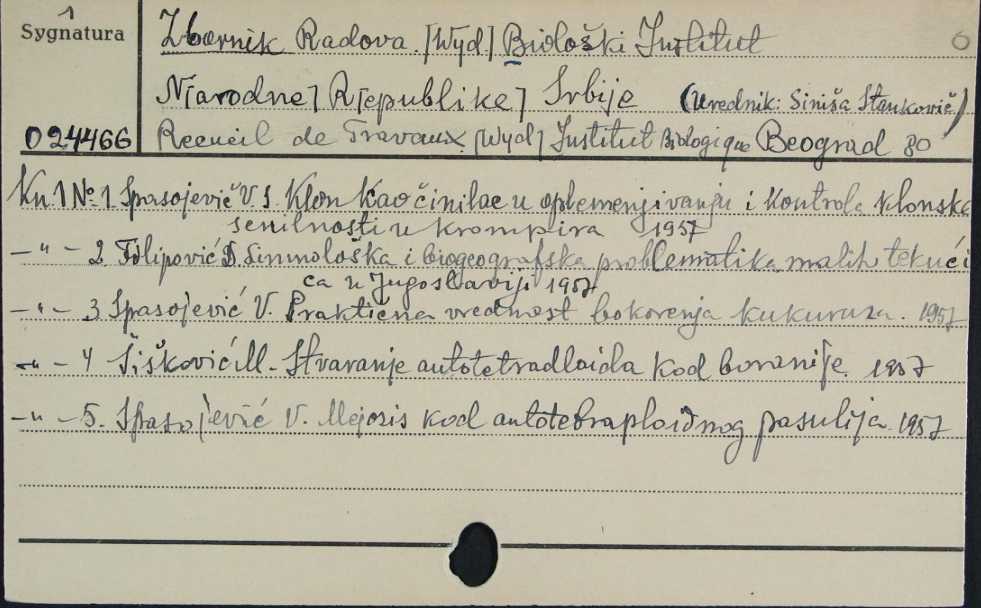 1
Sygnatura
Zbornik Radova. [Wyd.] Biološki Institut
6
N[arodne] R[epublike] Srbije (Urednik: Siniša Stanković)
024466
Recueil de Travaux [Wyd] Institut Biologique Beograd 80
Kn. 1 No. 1. Spasojević V. S. Klon kao činilac u oplemenjivanju i kontrola klonske
senilnosti u krompira 1957
— " — 2. Filipović D. Limnološka i biogeografska problematika malih tekući
ca u Jugoslaviji 1957
— " — 3 Spasojević V. Praktična vrednost bokorenja kukuruza. 1957
— " — 4 Šišković M. - Stvaranje autotetradloida kod boranije. 1957
— " — 5. Spasojević V. Mejozis kod autotetraploidnog pasulija. 1957